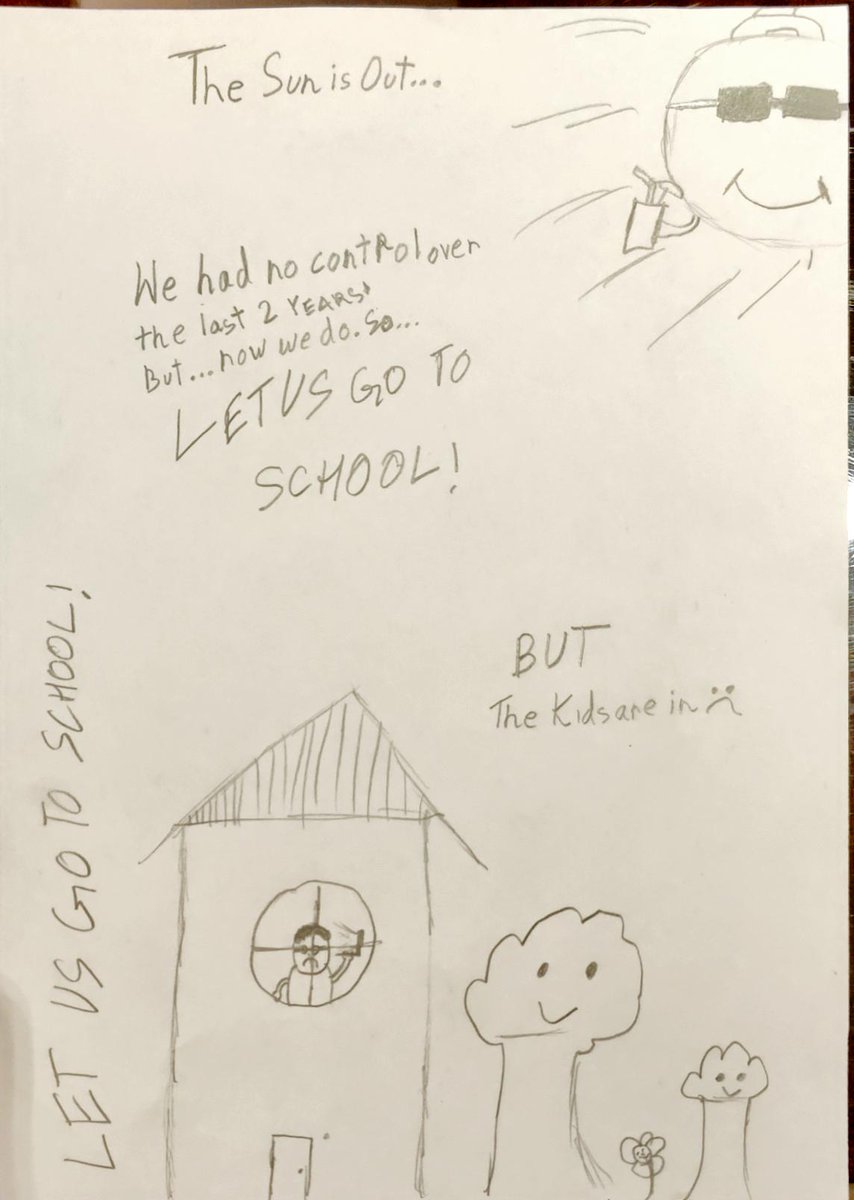 The Sun is Out...
We had no control over
the last 2 YEARS!
But...now we do. So...
LET US GO TO
SCHOOL!
BUT
The Kids are in :(
LET US GO TO SCHOOL!